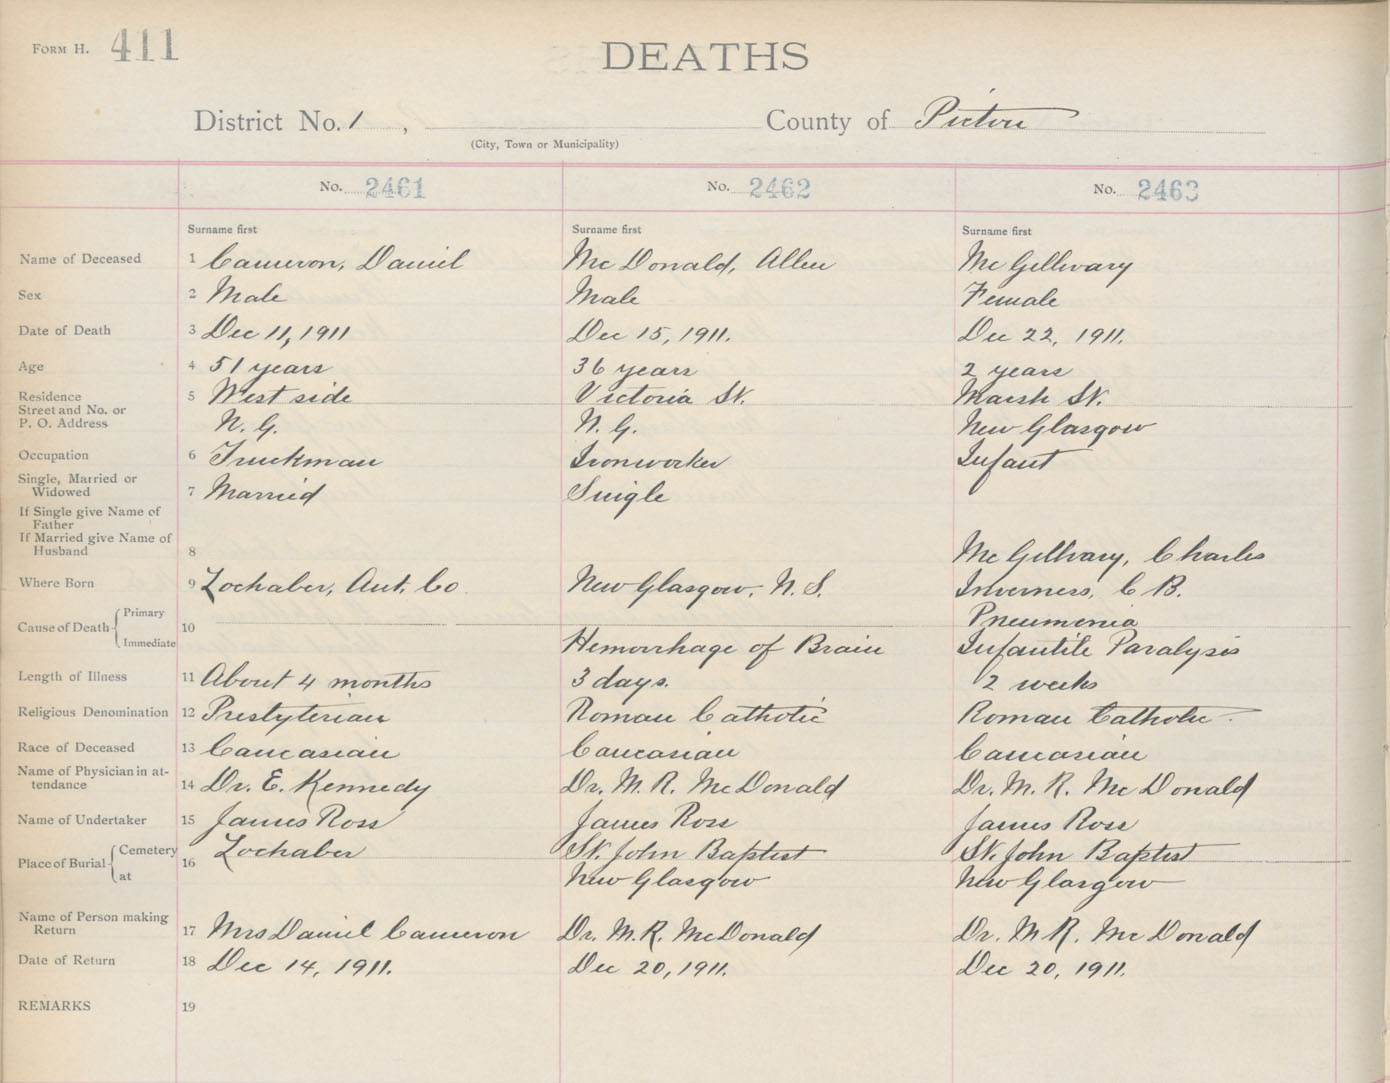 FORM H. 411
DEATHS
District No. 1, County of Pictou
(City, Town or Municipality)
No. 2461 No. 2462 No. 2463
Surname first Surname first Surname first
Name of Deceased 1 Cameron, Daniel Mc Donald, Allen Mc Gillvary
Sex 2 Male Male Female
Date of Death 3 Dec 11, 1911 Dec 15, 1911. Dec 22, 1911.
Age 4 51 years 36 years 2 years
Residence 5 West side Victoria St. Marsh St.
Street and No. or
P. O. Address N. G. N. G. New Glasgow
Occupation 6 Truckman Ironworker Infant
Single, Married or
Widowed 7 Married Single
If Single give Name of
Father
If Married give Name of
Husband 8 Mc Gillvary, Charles
Where Born 9 Lochaber, Ant. Co. New Glasgow, N. S. Inverness, C B.
Cause of Death Primary Pneumonia
10
Immediate Hemorrhage of Brain Infantile Paralysis
Length of Illness 11 About 4 months 3 days. 2 weeks
Religious Denomination 12 Presbyterian Roman Catholic Roman Catholic
Race of Deceased 13 Caucasian Caucasian Caucasian
Name of Physician in at-
tendance 14 Dr. E. Kennedy Dr. M. R. McDonald Dr. M. R. Mc Donald
Name of Undertaker 15 James Ross James Ross James Ross
Place of Burial Cemetery 16 Lochaber St. John Baptist St. John Baptist
at New Glasgow New Glasgow
Name of Person making
Return 17 Mrs Daniel Cameron Dr. M. R. McDonald Dr. M R. Mc Donald
Date of Return 18 Dec 14, 1911. Dec 20, 1911. Dec 20, 1911.
REMARKS 19